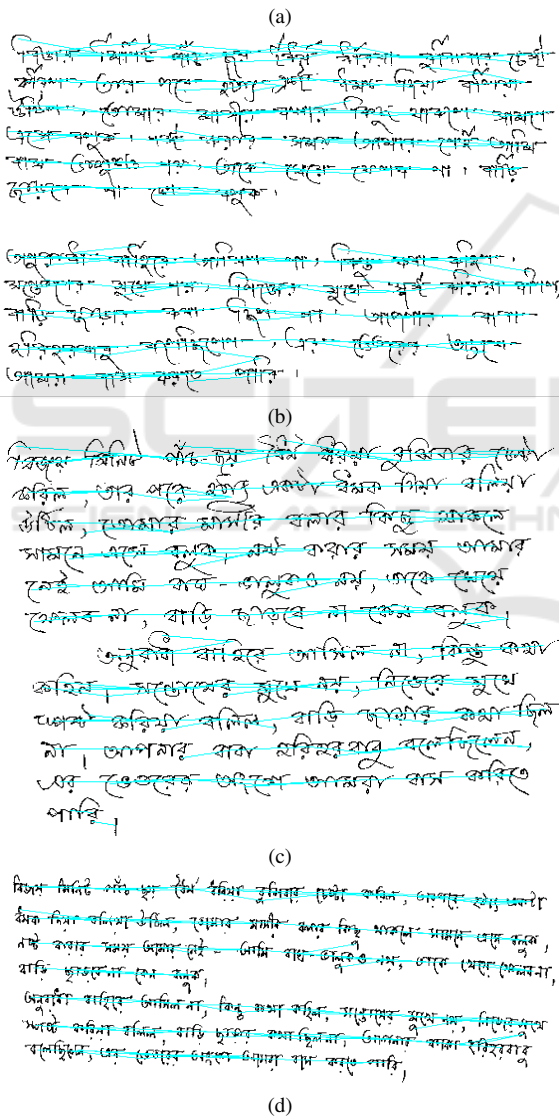 (a)
মিনিট পাঁচ ধৈর্য ধরিয়া বুঝিবার চেষ্টা
করিল, তার পরে হঠাৎ একটা ধমক দিয়া বলিয়া
উঠিল, তোমার মাসীর বলার কিছু থাকলে সামনে
এসে বলুক, নষ্ট করার সময় আমার নেই আমি
বাঘ ভালুকও নয়, তাকে খেয়ে ফেলব না, বাড়ি
ছাড়বে না কেন বলুক।
অনুরাধা বাহিরে আসিল না, কিন্তু কথা কহিল,
সন্তোষের মুখে নয়, নিজের মুখে করিয়া বলিল
বাড়ি ছাড়ার কথা ছিল না, আপনার বাবা
হরিহরবাবু বলেছিলেন, এর ভেতরের অংশে
আমরা বাস করতে পারি।
(b)
বিজয় মিনিট পাঁচ-ছয় ধৈর্য ধরিয়া বুঝিবার চেষ্টা
করিল, তার পরে হঠাৎ একটা ধমক দিয়া বলিয়া
উঠিল, তোমার মাসীর বলার কিছু থাকলে
সামনে এসে বলুক, নষ্ট করার সময় আমার
নেই আমি বাঘ-ভালুকও নয়, তাকে খেয়ে
ফেলব না, বাড়ি ছাড়বে না কেন বলুক।
অনুরাধা বাহিরে আসিল না, কিন্তু কথা
কহিল। সন্তোষের মুখে নয়, নিজের মুখে
স্পষ্ট করিয়া বলিল, বাড়ি ছাড়ার কথা ছিল
না, আপনার বাবা হরিহরবাবু বলেছিলেন,
এর ভেতরের অংশে আমরা বাস করিতে
পারি।
(c)
বিজয় মিনিট পাঁচ ছয় ধৈর্য ধরিয়া বুঝিবার চেষ্টা করিল, তারপরে হঠাৎ একটা
ধমক দিয়া বলিয়া উঠিল, তোমার মাসীর বলার কিছু থাকলে সামনে এসে বলুক,
নষ্ট করার সময় আমার নেই - আমি বাঘ-ভালুকও নয়, তাকে খেয়ে ফেলবনা,
বাড়ি ছাড়বে না কেন বলুক,
অনুরাধা বাহিরে আসিল না, কিন্তু কথা কহিল, সন্তোষের মুখে নয়, নিজের মুখে
স্পষ্ট করিয়া বলিল, বাড়ি ছাড়ার কথা ছিল না আপনার বাবা হরিহরবাবু
বলেছিলেন, এর ভেতরের অংশে আমরা বাস করতে পারি,
(d)